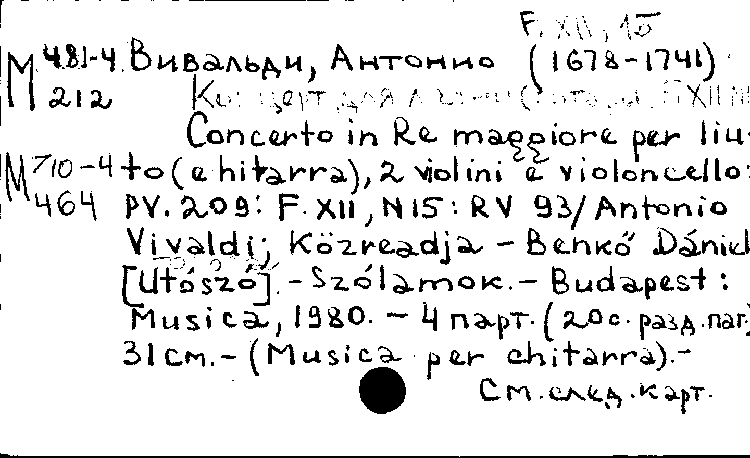 F. XII, 15
M 481-4 Вивальди, Антонио (1678-1741)
212 Концерт для лютни (гитары, F XII №
Concerto in Re maggiore per liu-
M 710-4 to (chitarra), 2 violini e violoncello:
464 PV. 209: F. XII, N15: RV 93/Antonio
Vivaldi; Közreadja - Benkő Dániel
[Utószó]. - Szólamok. - Budapest:
Musica, 1980. - 4 парт. (20с. разд. паг.)
31см. - (Musica per chitarra). -
См. след. карт.